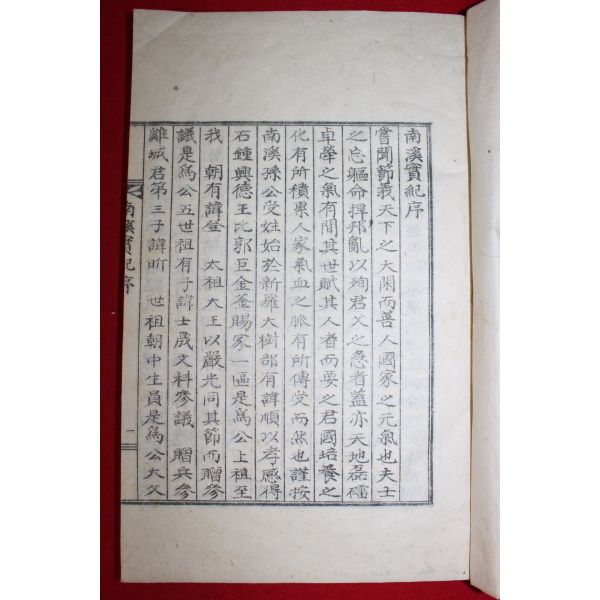 南溪實紀序
嘗聞節義天下之大閑而善人國家之元氣也夫士
之忘軀命捍邦亂以殉君父之急者盖亦天地磊磊
卓犖之氣有間其世賦其人者而要之君國培養之
化有所積累人家氣血之脈有所傳受而然也謹按
南溪孫公受姓始於新羅大樹部有諱順以孝感得
石鍾興德王比郭巨金釜賜家一區是爲公上祖至
我 朝有諱登 太祖大王以嚴光同其節而贈參
議是爲公五世祖有子諱士晟文科參議 贈兵參
雞城君第三子諱昕 世祖朝中生員是爲公大父
南溪實紀序
一